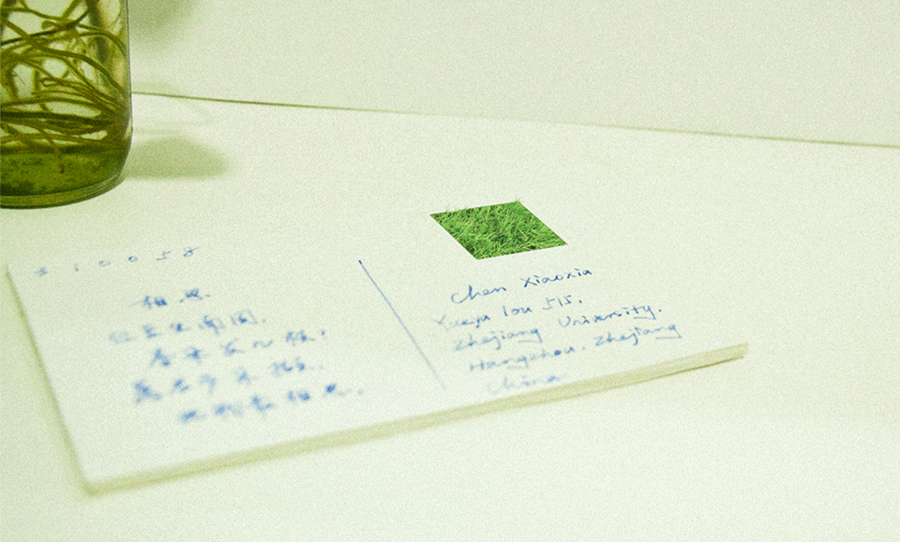 310058
相思.
红豆生南国.
春来发几枝,
愿君多采撷.
此物最相思.
Chen Xiaoxia
lou 515,
Zhejiang University.
Hangzhou. Zhejiang
China